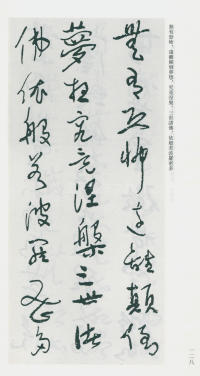 無有恐怖，遠離顛倒夢想，究竟涅槃。三世諸佛，依般若波羅蜜多
無有恐怖遠離顛倒
夢想究竟涅槃三世諸
佛依般若波羅蜜多
一二八